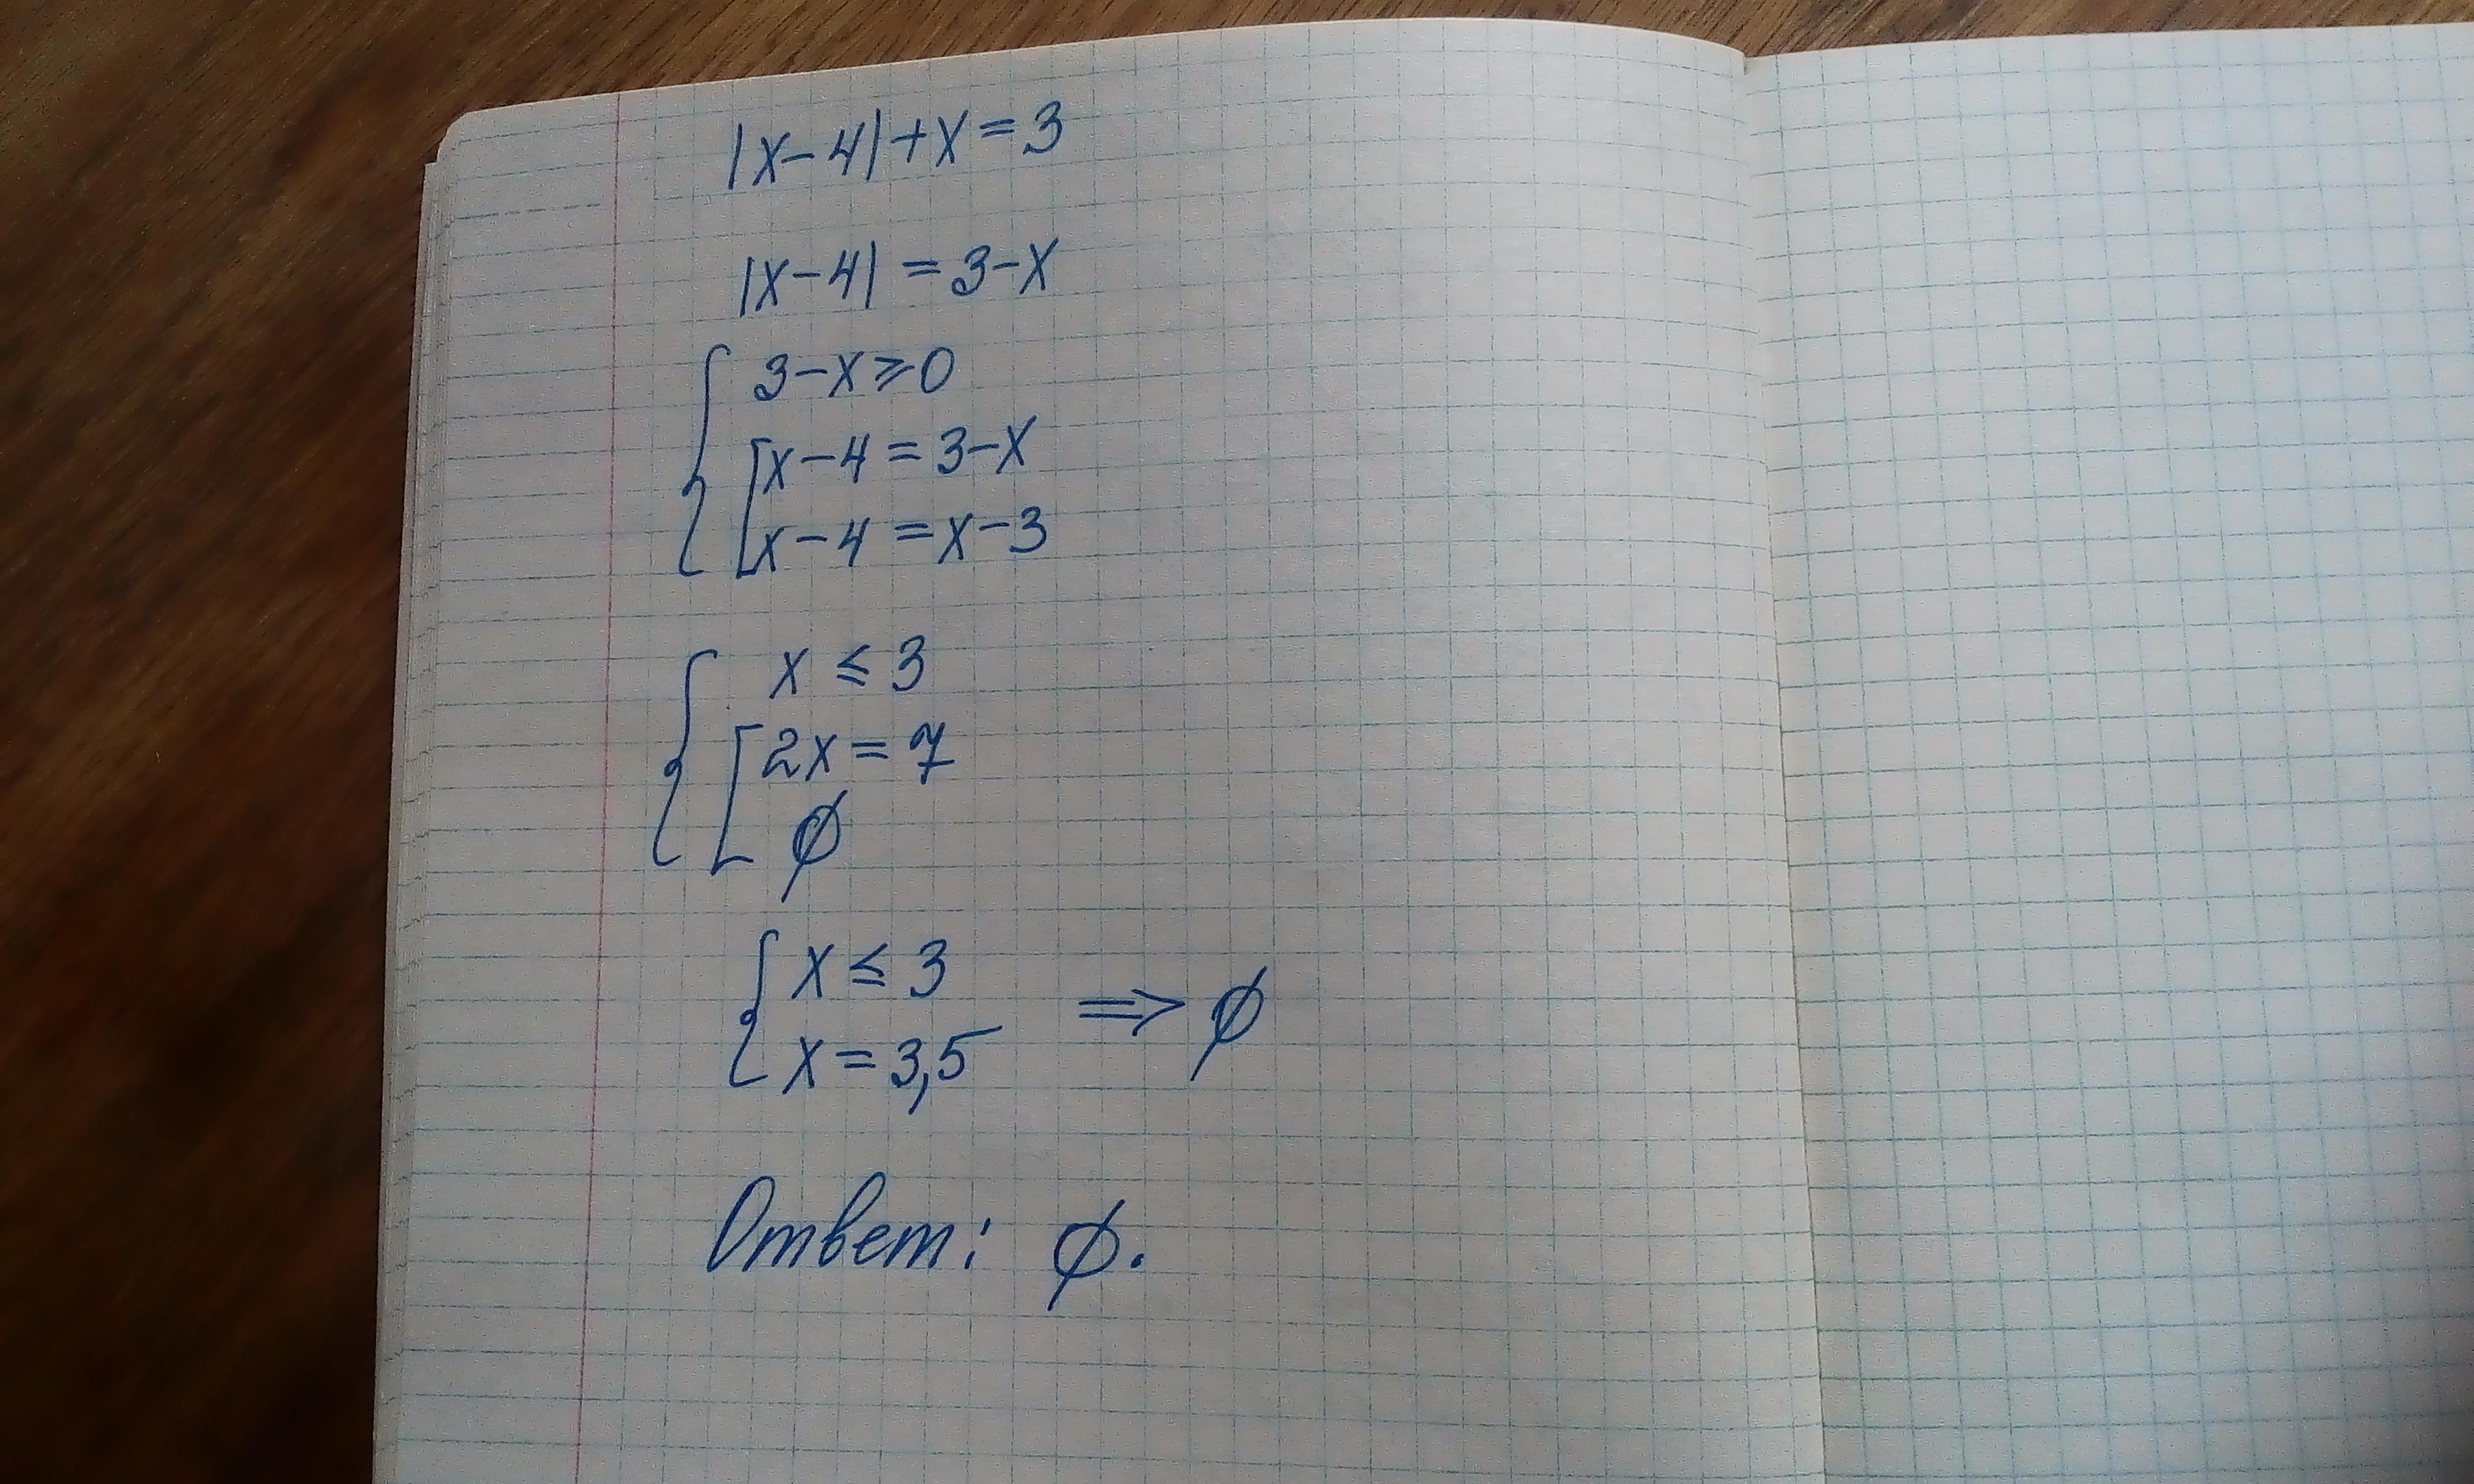 |x-4|+x=3
|x-4|=3-x
{ 3-x⩾0
[ x-4=3-x
x-4=x-3
{ x⩽3
[ 2x=7
∅
{ x⩽3
x=3,5 ⇒ ∅
Ответ: ∅.